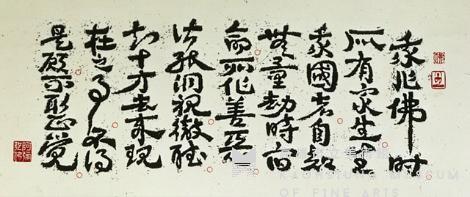 我作佛時
所有眾生生
我國者自知
無量劫時宿
命所作善惡
皆能洞視徹聽
知十方去來現
在之事不得
是願不取正覺
KAOHSIUNG MUSEUM
OF FINE ARTS